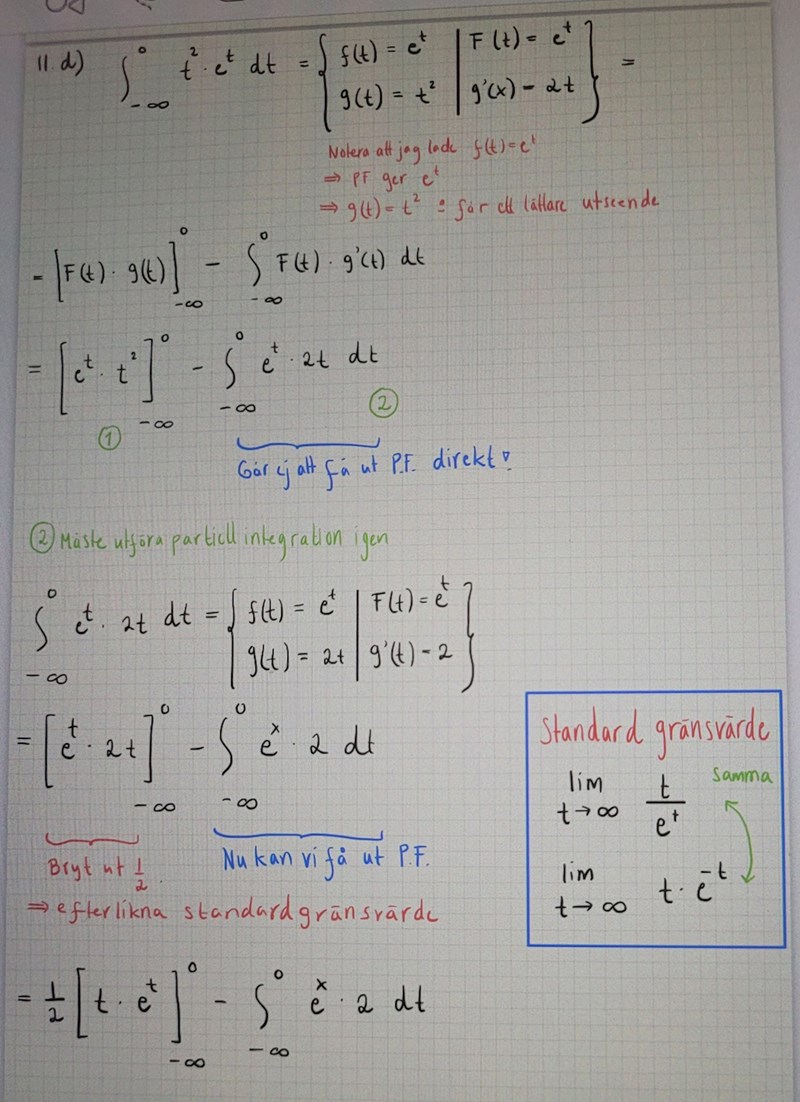 11. d) ∫_{-∞}^{0} t² · e^t dt = { f(t) = e^t | F(t) = e^t
g(t) = t² | g'(x) - 2t } =
Notera att jag lade f(t) = e^t
⇒ PF ger e^t
⇒ g(t) = t² : för ett lättare utseende
= [F(t) · g(t)]_{-∞}^{0} - ∫_{-∞}^{0} F(t) · g'(t) dt
= [e^t · t²]_{-∞}^{0} - ∫_{-∞}^{0} e^t · 2t dt
① ②
Går ej att få ut P.F. direkt!
② Måste utföra partiell integration igen
∫_{-∞}^{0} e^t · 2t dt = { f(t) = e^t | F(t) = e^t
g(t) = 2t | g'(t) - 2 }
= [e^t · 2t]_{-∞}^{0} - ∫_{-∞}^{0} e^x · 2 dt
Bryt ut 1/2. Nu kan vi få ut P.F.
⇒ efterlikna standardgränsvärde
= 1/2 [t · e^t]_{-∞}^{0} - ∫_{-∞}^{0} e^x · 2 dt
Standard gränsvärde
lim_{t→∞} t/e^t samma
lim_{t→∞} t · e^{-t}